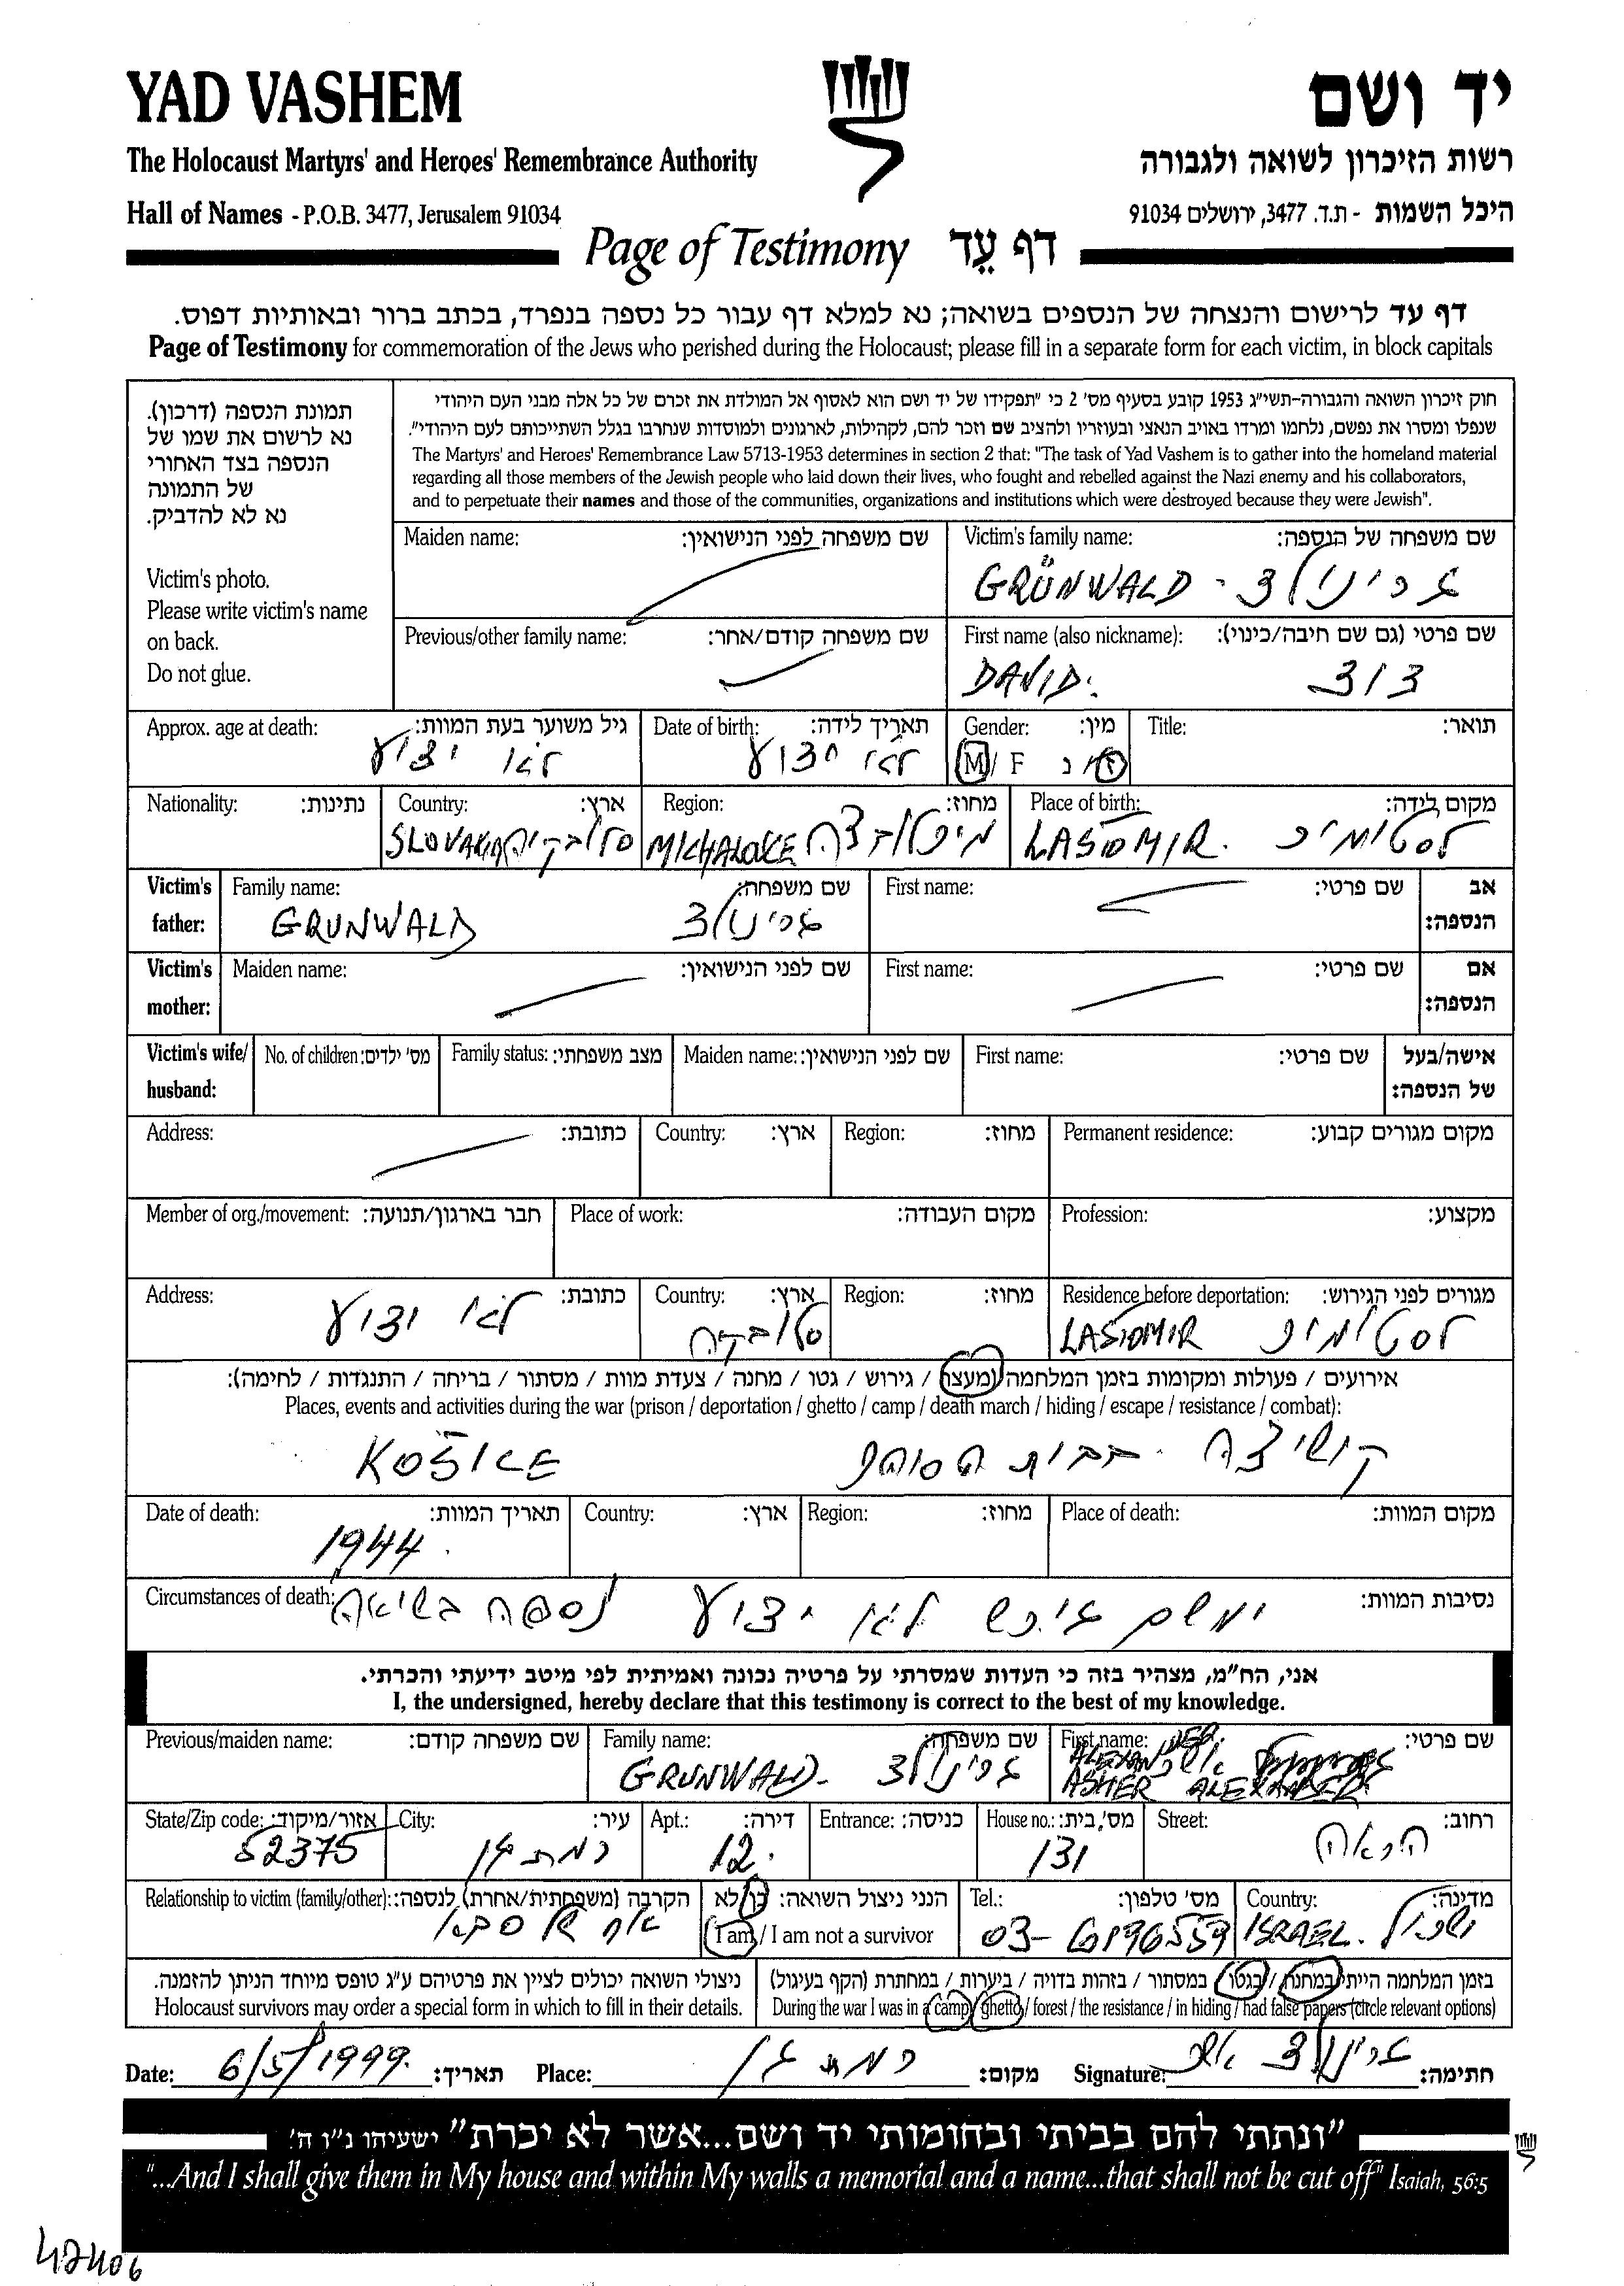 YAD VASHEM
יד ושם
The Holocaust Martyrs' and Heroes' Remembrance Authority
רשות הזיכרון לשואה ולגבורה
Hall of Names - P.O.B. 3477, Jerusalem 91034
היכל השמות - ת.ד. 3477, ירושלים 91034
Page of Testimony דף עֵד
דף עד לרישום והנצחה של הנספים בשואה; נא למלא דף עבור כל נספה בנפרד, בכתב ברור ובאותיות דפוס.
Page of Testimony for commemoration of the Jews who perished during the Holocaust; please fill in a separate form for each victim, in block capitals
תמונת הנספה (דרכון).
נא לרשום את שמו של
הנספה בצד האחורי
של התמונה
נא לא להדביק.
Victim's photo.
Please write victim's name
on back.
Do not glue.
חוק זיכרון השואה והגבורה-תשי"ג 1953 קובע בסעיף מס' 2 כי "תפקידו של יד ושם הוא לאסוף אל המולדת את זכרם של כל אלה מבני העם היהודי
שנפלו ומסרו את נפשם, נלחמו ומרדו באויב הנאצי ובעוזריו ולהציב שם וזכר להם, לקהילות, לארגונים ולמוסדות שנחרבו בגלל השתייכותם לעם היהודי".
The Martyrs' and Heroes' Remembrance Law 5713-1953 determines in section 2 that: "The task of Yad Vashem is to gather into the homeland material
regarding all those members of the Jewish people who laid down their lives, who fought and rebelled against the Nazi enemy and his collaborators,
and to perpetuate their names and those of the communities, organizations and institutions which were destroyed because they were Jewish".
Maiden name: שם משפחה לפני הנישואין:
Victim's family name: שם משפחה של הנספה:
GRÜNWALD - גרינולד
Previous/other family name: שם משפחה קודם/אחר:
First name (also nickname): שם פרטי (גם שם חיבה/כינוי):
DAVID. דוד
Approx. age at death: גיל משוער בעת המוות: Date of birth: תאריך לידה: Gender: מין: Title: תואר:
לא ידוע לא ידוע M/ F ז/ נ
Nationality: נתינות: Country: ארץ: Region: מחוז: Place of birth: מקום לידה:
SLOVAKIA סלובקיה MICHALOVCE מיכלובצה LASTOMIR. לסטומיר
Victim's father: Family name: שם משפחה: First name: שם פרטי: אב הנספה:
GRUNWALD גרינולד
Victim's mother: Maiden name: שם לפני הנישואין: First name: שם פרטי: אם הנספה:
Victim's wife/ husband: No. of children: מס' ילדים: Family status: מצב משפחתי: Maiden name: שם לפני הנישואין: First name: שם פרטי: אישה/בעל של הנספה:
Address: כתובת: Country: ארץ: Region: מחוז: Permanent residence: מקום מגורים קבוע:
Member of org./movement: חבר בארגון/תנועה: Place of work: מקום העבודה: Profession: מקצוע:
Address: כתובת: Country: ארץ: Region: מחוז: Residence before deportation: מגורים לפני הגירוש:
לא ידוע סלובקיה LASTOMIR לסטומיר
אירועים / פעולות ומקומות בזמן המלחמה (מעצר / גירוש / גטו / מחנה / צעדת מוות / מסתור / בריחה / התנגדות / לחימה):
Places, events and activities during the war (prison / deportation / ghetto / camp / death march / hiding / escape / resistance / combat):
KOŠICE קושיצה - בבית הסוהר
Date of death: תאריך המוות: Country: ארץ: Region: מחוז: Place of death: מקום המוות:
1944
Circumstances of death: נסיבות המוות:
ומשם גורש לא ידוע נספה בשואה
אני, הח"מ, מצהיר בזה כי העדות שמסרתי על פרטיה נכונה ואמיתית לפי מיטב ידיעתי והכרתי.
I, the undersigned, hereby declare that this testimony is correct to the best of my knowledge.
Previous/maiden name: שם משפחה קודם: Family name: שם משפחה: First name: שם פרטי:
GRUNWALD- גרינולד ALEXANDER אשר
ASHER ALEXANDER
State/Zip code: אזור/מיקוד: City: עיר: Apt.: דירה: Entrance: כניסה: House no.: מס' בית: Street: רחוב:
52375 רמת גן 12. 131 הרואה
Relationship to victim (family/other): הקרבה (משפחתית/אחרת) לנספה: הנני ניצול השואה: כן/לא Tel.: מס' טלפון: Country: מדינה:
אח של סבא I am / I am not a survivor 03-6196559 ISRAEL. ישראל
ניצולי השואה יכולים לציין את פרטיהם ע"ג טופס מיוחד הניתן להזמנה.
Holocaust survivors may order a special form in which to fill in their details.
בזמן המלחמה הייתי במחנה / בגטו / במסתור / בזהות בדויה / ביערות / במחתרת (הקף בעיגול)
During the war I was in a camp / ghetto / forest / the resistance / in hiding / had false papers (circle relevant options)
Date: 6/5/1999. תאריך: Place: רמת גן מקום: Signature: גרינולד אשר חתימה:
"ונתתי להם בביתי ובחומותי יד ושם...אשר לא יכרת" ישעיהו נ"ו ה'
"...And I shall give them in My house and within My walls a memorial and a name...that shall not be cut off" Isaiah, 56:5